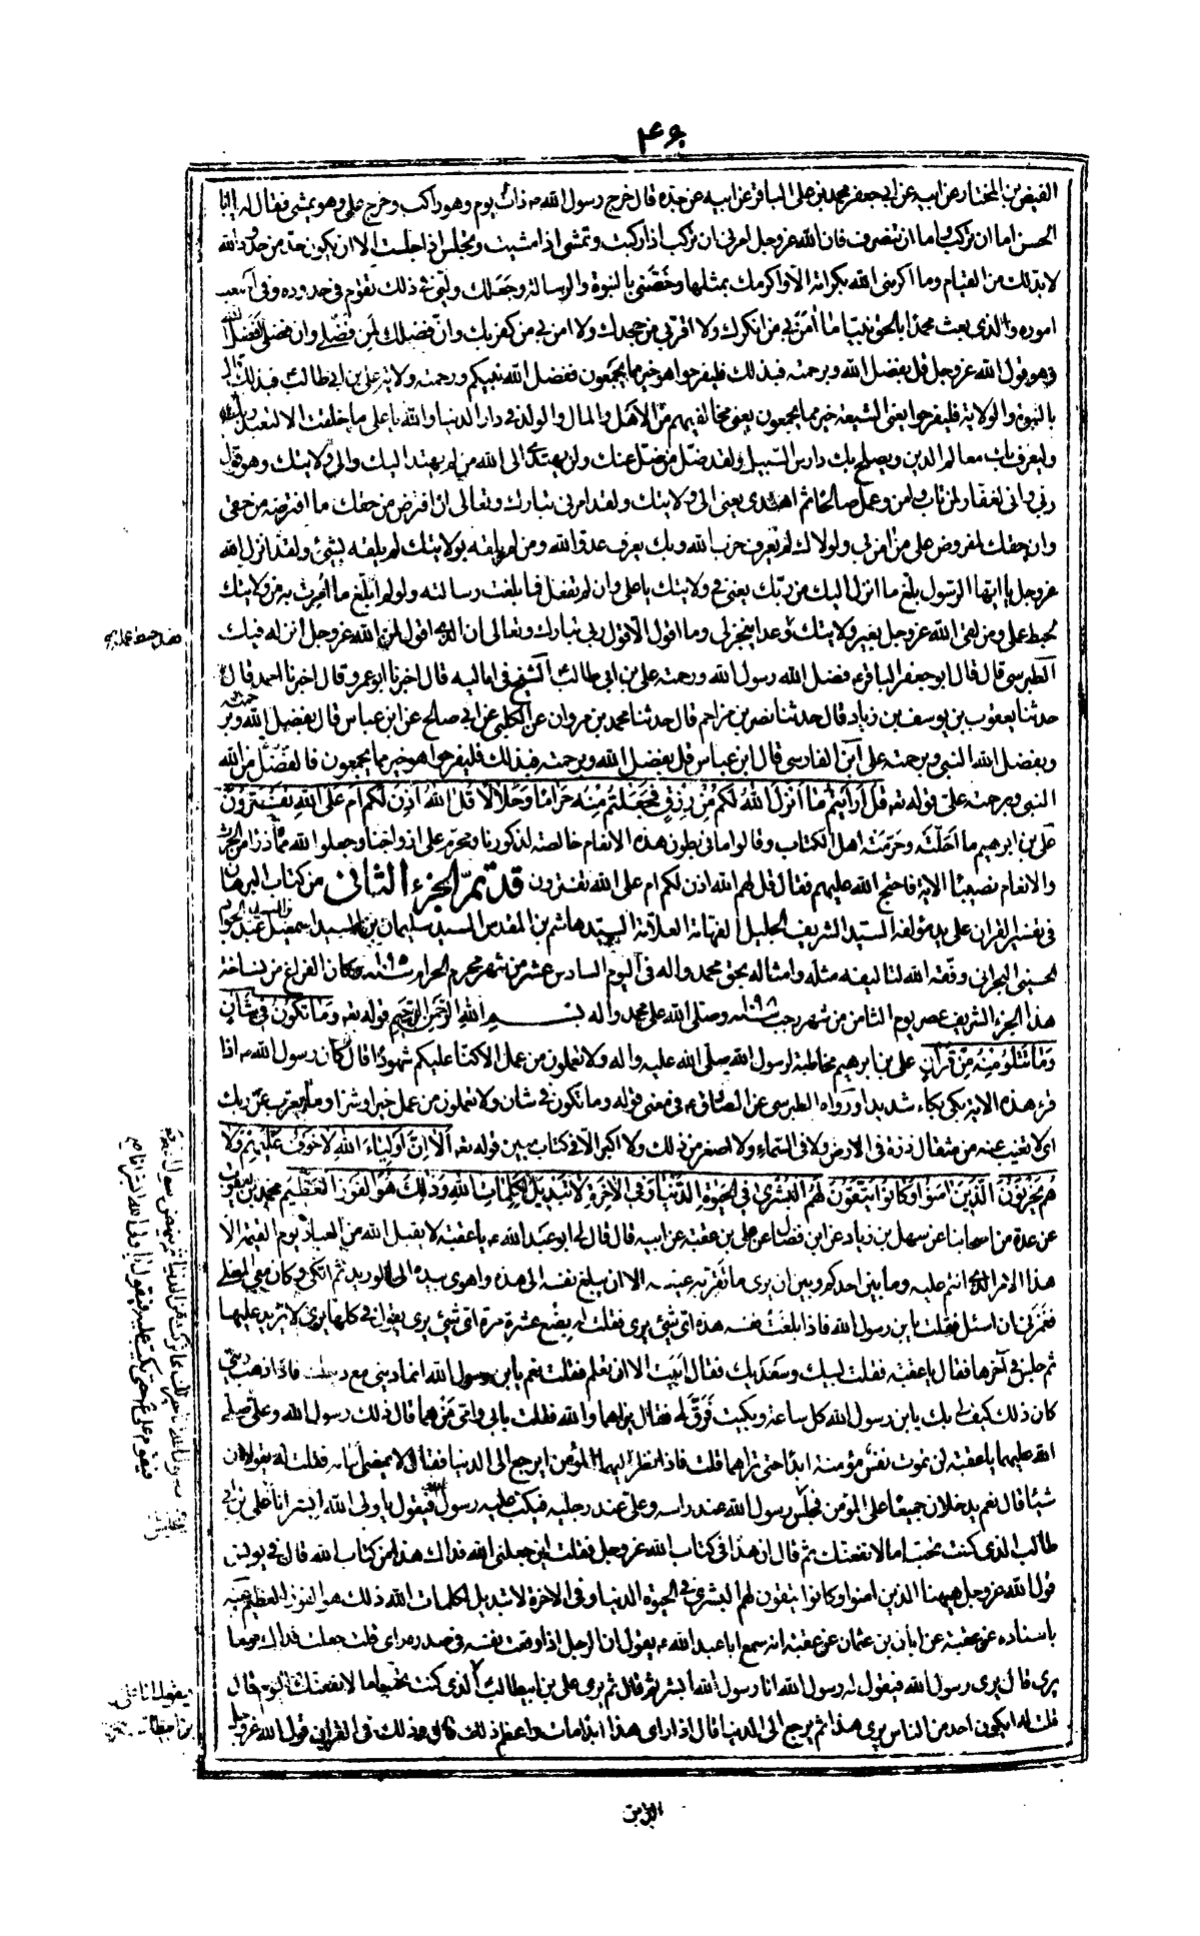 ۴۶
الفيض بن المختار عن ابيه عن ابي جعفر محمد بن علي الباقر عن ابيه عن جده قال خرج رسول الله ص ذات يوم وهو راكب وخرج علي وهو يمشي فقال له يا ابا
الحسن اما ان تركب واما ان تنصرف فان الله عز وجل امرني ان تركب اذا ركبت وتمشي اذا مشيت وتجلس اذا جلست الا ان يكون حد من حدود الله
لا بد لك من القيام وما اكرمني الله بكرامة الا واكرمك بمثلها وخصني بالنبوة والرسالة وجعلك وليي في ذلك تقوم في حدوده وفي اصعب
اموره والذي بعث محمدا بالحق نبيا ما امن بي من انكرك ولا اقر بي من جحدك ولا امن بي من كفر بك وان فضلك لمن فضلي وان فضلي لفضل الله
وهو قول الله عز وجل قل بفضل الله وبرحمته فبذلك فليفرحوا هو خير مما يجمعون ففضل الله نبيكم ورحمته ولاية علي بن ابي طالب فبذلك قال
بالنبوة والولاية فليفرحوا يعني الشيعة خير مما يجمعون يعني مخالفيهم من الاهل والمال والولد في دار الدنيا والله يا علي ما خلقت الا لتعبد ربك
وليعرف بك معالم الدين ويصلح بك دارس السبيل ولقد ضل من ضل عنك ولن يهتدي الى الله من لم يهتد اليك والى ولايتك وهو قول
ربي واني لغفار لمن تاب وامن وعمل صالحا ثم اهتدى يعني الى ولايتك ولقد امرني تبارك وتعالى ان افترض من حقك ما افترضه من حقي
وان حقك لمفروض على من امن بي ولولاك لم يعرف حزب الله وبك يعرف عدو الله ومن لم يلقه بولايتك لم يلقه بشيئ ولقد انزل الله
عز وجل يا ايها الرسول بلغ ما انزل اليك من ربك يعني في ولايتك يا علي وان لم تفعل فما بلغت رسالته ولو لم ابلغ ما امرت به من ولايتك
لحبط عملي ومن لقي الله عز وجل بغير ولايتك وعد ينجز لي وما اقول الا قول ربي تبارك وتعالى ان الذي اقول لمن الله عز وجل انزله فيك
الطبرسي قال قال ابو جعفر الباقر ع فضل الله رسول الله ورحمته علي بن ابي طالب الشيخ في اماليه قال اخبرنا ابو عمرو قال اخبرنا احمد قال
حدثنا يعقوب بن يوسف بن زياد قال حدثنا نصر بن مزاحم قال حدثنا محمد بن مروان عن الكلبي عن ابي صالح عن ابن عباس قال بفضل الله وبرحمته
وبفضل الله النبي وبرحمته علي ابن الفارسي قال ابن عباس قل بفضل الله وبرحمته فبذلك فليفرحوا هو خير مما يجمعون قال فضل من الله
النبي وبرحمته علي قوله تع قل ارايتم ما انزل الله لكم من رزق فجعلتم منه حراما وحلالا قل الله اذن لكم ام على الله تفترون
علي بن ابرهيم ما احلته وحرمته اهل الكتاب وقالوا ما في بطون هذه الانعام خالصة لذكورنا ومحرم على ازواجنا وجعلوا لله مما ذرا من الحرث
والانعام نصيبا الاية فاحتج الله عليهم فقال قل لهم الله اذن لكم ام على الله تفترون قد تم الجزء الثاني من كتاب البرهان
في تفسير القران على يد مؤلفه السيد الشريف الجليل الفهامة العلامة السيد هاشم بن المقدس السيد سليمان بن السيد اسمعيل بن السيد عبد الجواد
الحسيني البحراني وفقه الله لتاليفه مثله وامثاله بحق محمد واله في اليوم السادس عشر من شهر محرم الحرام سنة ١٠٩٥ وكان الفراغ من نساخة
هذا الجزء الشريف عصر يوم الثامن من شهر رجب سنة ١٠٩٨ وصلى الله على محمد واله بسم الله الرحمن الرحيم قوله تع وما تكون في شان
وما تتلو منه من قران علي بن ابرهيم مخاطبة لرسول الله صلى الله عليه واله ولا تعملون من عمل الا كنا عليكم شهودا قال كان رسول الله ص اذا
قرء هذه الاية بكى بكاء شديدا ورواه الطبرسي عن الصادق ع في معنى قوله وما تكون في شان ولا تعملون من عمل خير او شر وما يعزب عن ربك
اي لا يغيب عنه من مثقال ذرة في الارض ولا في السماء ولا اصغر من ذلك ولا اكبر الا في كتاب مبين قوله تع الا ان اولياء الله لا خوف عليهم ولا
هم يحزنون الذين امنوا وكانوا يتقون لهم البشرى في الحيوة الدنيا وفي الاخرة لا تبديل لكلمات الله وذلك هو الفوز العظيم محمد بن يعقوب
عن عدة من اصحابنا عن سهل بن زياد عن ابن فضال عن علي بن عقبة عن ابيه قال قال لي ابو عبد الله ع يا عقبة لا يقبل الله من العباد يوم القيمة الا
هذا الامر الذي انتم عليه وما بين احدكم وبين ان يرى ما تقر به عينه الا ان يبلغ نفسه الى هذه واهوى بيده الى الوريد ثم اتكى وكان معي المعلى
فغمزني ان اسئله فقلت يا بن رسول الله فاذا بلغت نفسه هذه اي شيئ يرى فقلت له بضع عشرة مرة اي شيئ يرى يقول في كلها يرى لا يزيد عليها
ثم جلس في آخرها فقال يا عقبة فقلت لبيك وسعديك فقال ابيت الا ان تعلم فقلت نعم يا بن رسول الله انما ديني مع دينك فاذا ذهب ديني
كان ذلك كيف لي بك يا بن رسول الله كل ساعة وبكيت فرق لي فقال يراهما والله فقلت بابي وامي من هما قال ذلك رسول الله وعلي صلى
الله عليهما يا عقبة لن تموت نفس مؤمنة ابدا حتى تراهما قلت فاذا نظر اليهما المؤمن ايرجع الى الدنيا فقال لا يمضي امامه فقلت له يقولان
شيئا قال نعم يدخلان جميعا على المؤمن فيجلس رسول الله عند راسه وعلي عند رجليه فيكب عليه رسول الله فيقول يا ولي الله ابشر انا علي بن ابي
طالب الذي كنت تحب اما لانفعنك ثم قال ان هذا في كتاب الله عز وجل فقلت اين جعلني الله فداك هذا من كتاب الله قال في يونس
قول الله عز وجل هيهنا الذين امنوا وكانوا يتقون لهم البشرى في الحيوة الدنيا وفي الاخرة لا تبديل لكلمات الله ذلك هو الفوز العظيم عنه
باسناده عن عقبة عن ابان بن عثمان عن عقبة انه سمع ابا عبد الله ع يقول ان الرجل اذا وقعت نفسه في صدره راى قلت جعلت فداك وما
يرى قال يرى رسول الله فيقول له رسول الله انا رسول الله ابشر ثم قال ثم يرى علي بن ابيطالب الذي كنت تحبه اما لانفعنك اليوم قال
قلت له ايكون احد من الناس يرى هذا ثم يرجع الى الدنيا قال اذا راى هذا ابدا مات واعظم ذلك قال وذلك في القران قول الله عز وجل
الذين
فيقول انا علي
بن ابيطالب